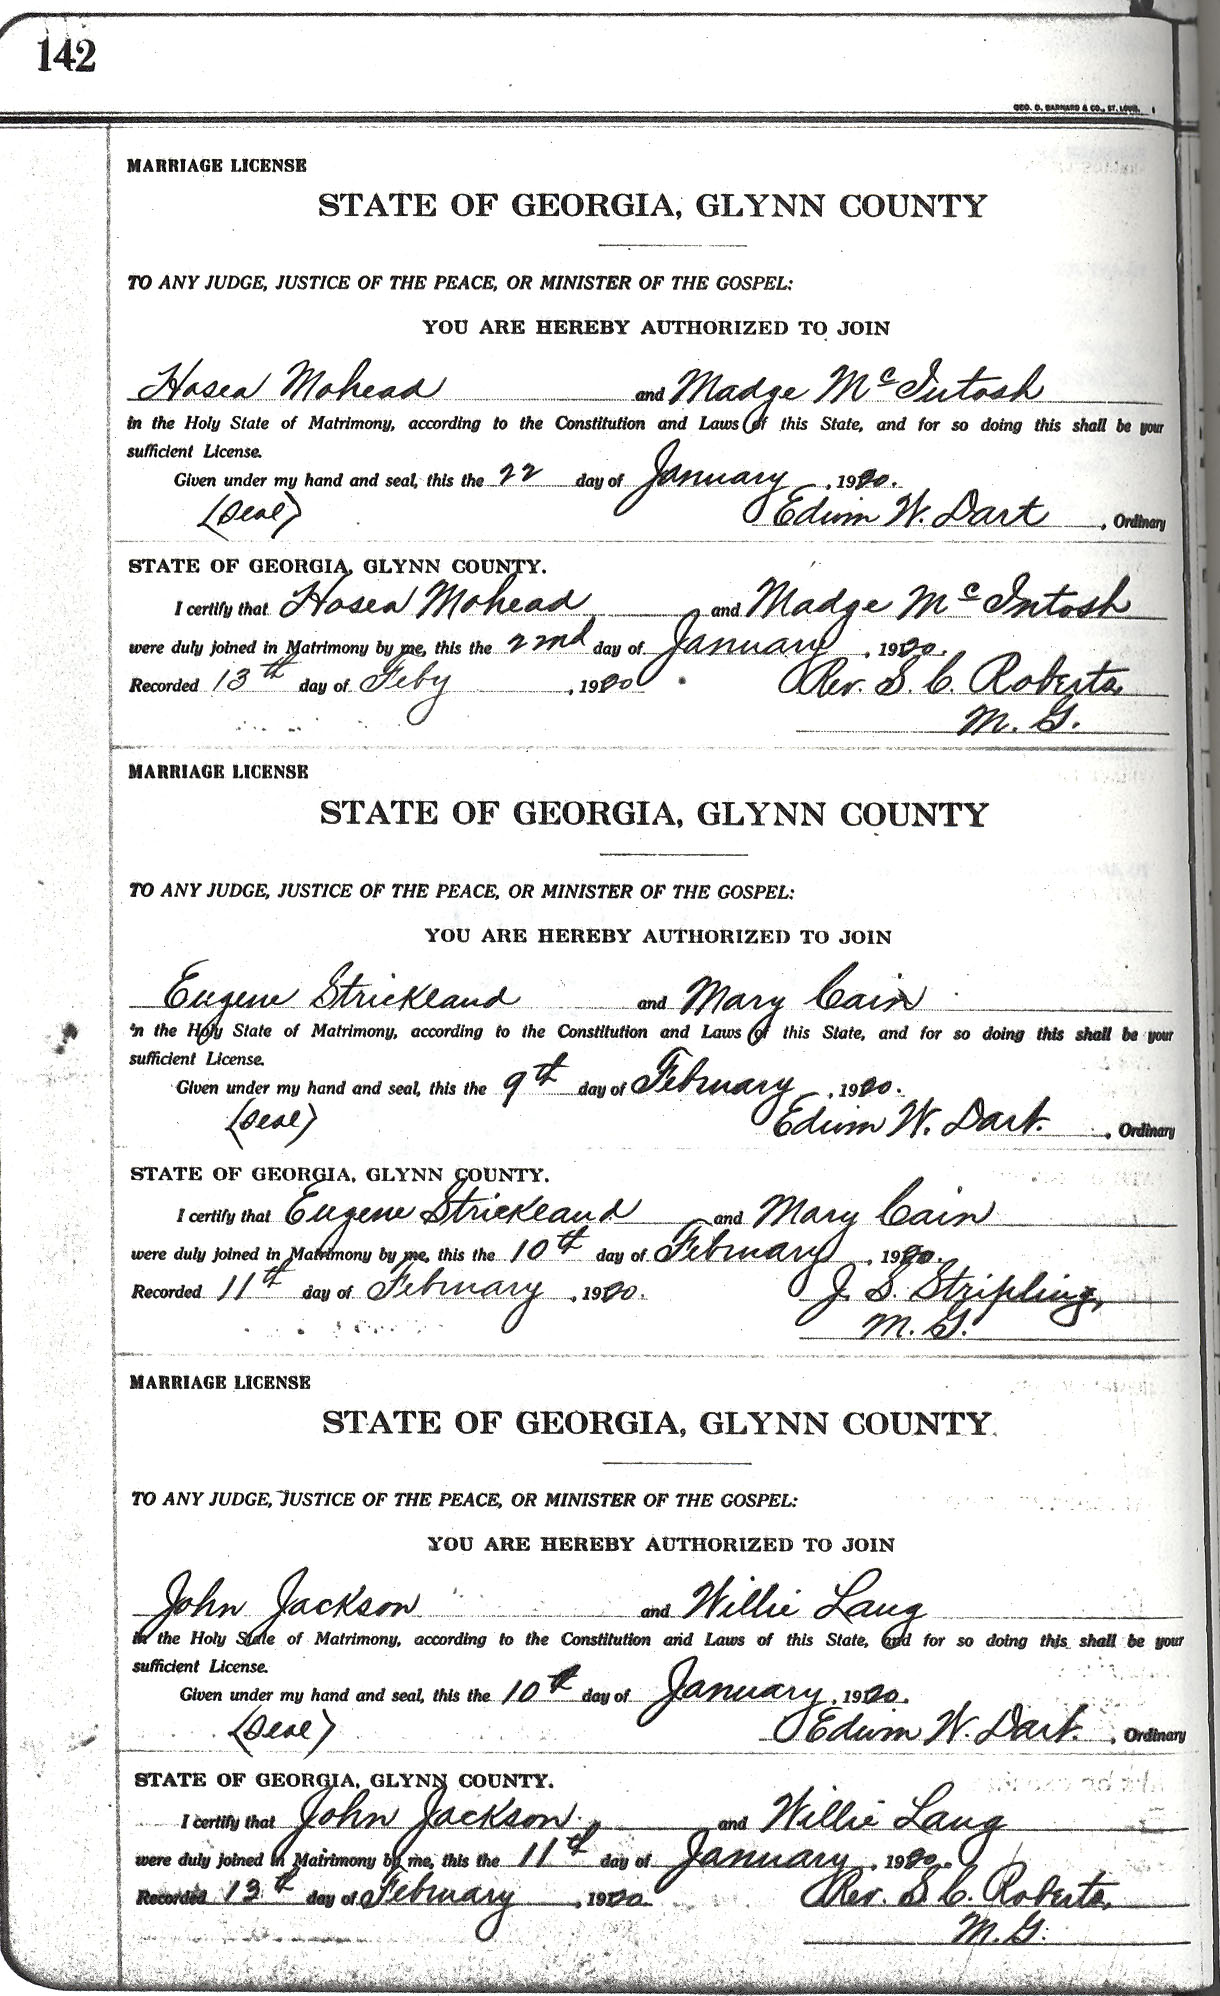 142
GEO. D. BARNARD & CO., ST. LOUIS.
MARRIAGE LICENSE
STATE OF GEORGIA, GLYNN COUNTY
TO ANY JUDGE, JUSTICE OF THE PEACE, OR MINISTER OF THE GOSPEL:
YOU ARE HEREBY AUTHORIZED TO JOIN
Hosea Mohead and Madge McIntosh
in the Holy State of Matrimony, according to the Constitution and Laws of this State, and for so doing this shall be your
sufficient License.
Given under my hand and seal, this the 22 day of January, 1920.
(Seal) Edwin W. Dart, Ordinary
STATE OF GEORGIA, GLYNN COUNTY.
I certify that Hosea Mohead and Madge McIntosh
were duly joined in Matrimony by me, this the 22nd day of January, 1920.
Recorded 13th day of Feby, 1920 Rev. S. C. Roberts,
M. G.
MARRIAGE LICENSE
STATE OF GEORGIA, GLYNN COUNTY
TO ANY JUDGE, JUSTICE OF THE PEACE, OR MINISTER OF THE GOSPEL:
YOU ARE HEREBY AUTHORIZED TO JOIN
Eugene Strickland and Mary Cain
in the Holy State of Matrimony, according to the Constitution and Laws of this State, and for so doing this shall be your
sufficient License.
Given under my hand and seal, this the 9th day of February, 1920.
(Seal) Edwin W. Dart., Ordinary
STATE OF GEORGIA, GLYNN COUNTY.
I certify that Eugene Strickland and Mary Cain
were duly joined in Matrimony by me, this the 10th day of February, 1920.
Recorded 11th day of February, 1920. J. S. Stripling,
M. G.
MARRIAGE LICENSE
STATE OF GEORGIA, GLYNN COUNTY
TO ANY JUDGE, JUSTICE OF THE PEACE, OR MINISTER OF THE GOSPEL:
YOU ARE HEREBY AUTHORIZED TO JOIN
John Jackson and Willie Lang
in the Holy State of Matrimony, according to the Constitution and Laws of this State, and for so doing this shall be your
sufficient License.
Given under my hand and seal, this the 10th day of January, 1920.
(Seal) Edwin W. Dart., Ordinary
STATE OF GEORGIA, GLYNN COUNTY.
I certify that John Jackson and Willie Lang
were duly joined in Matrimony by me, this the 11th day of January, 1920.
Recorded 13th day of February, 1920 Rev. S. C. Roberts,
M. G.